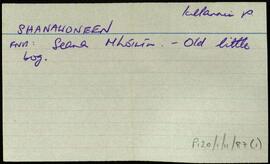 Killannin p
SHANAWONEEN
FNM: Seana Mhóinín. - Old little
bog.
P120/1/1/87(1)